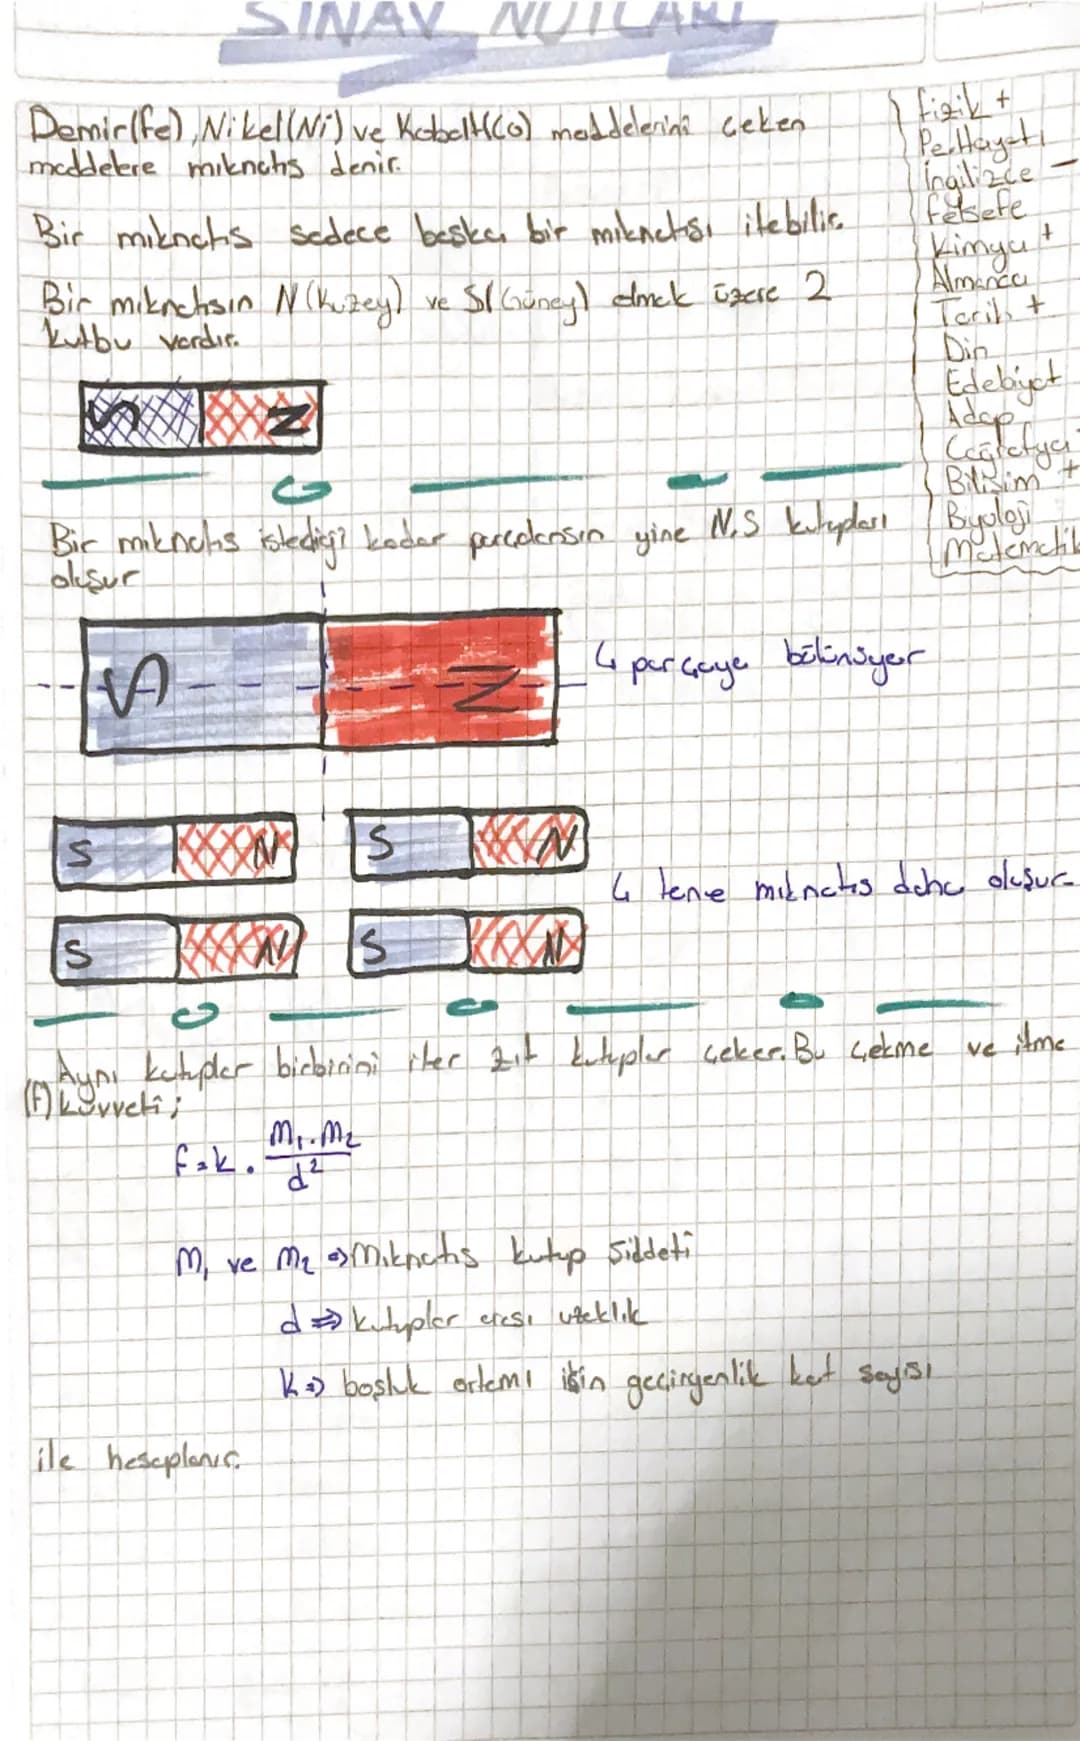 SINAV NOTLARI
Demir(fe), Nikel(Ni) ve Kobalt(Co) maddelerini çeken
maddelere mıknatıs denir.
Bir mıknatıs sadece başka bir mıknatısı itebilir.
Bir mıknatısın N(Kuzey) ve S(Güney) olmak üzere 2
kutbu vardır.
S N
Bir mıknatıs istediği kadar parçalansın yine N,S kutupları
oluşur
S N
4 parçaya bölünüyor
S N S N
4 tane mıknatıs daha oluşur
S N S N
Aynı kutuplar birbirini iter zıt kutuplar çeker. Bu çekme ve itme
(F) kuvveti;
f=k. m₁.m₂/d²
m₁ ve m₂ => Mıknatıs kutup Şiddeti
d => kutuplar arası uzaklık
k => boşluk ortamı için geçirgenlik kat sayısı
ile hesaplanır.
fizik +
Per.Hayatı
İngilizce -
felsefe
Kimya +
Almanca
Tarih +
Din
Edebiyat
Adap
Coğrafya
Bilişim +
Byoloji
Matematik